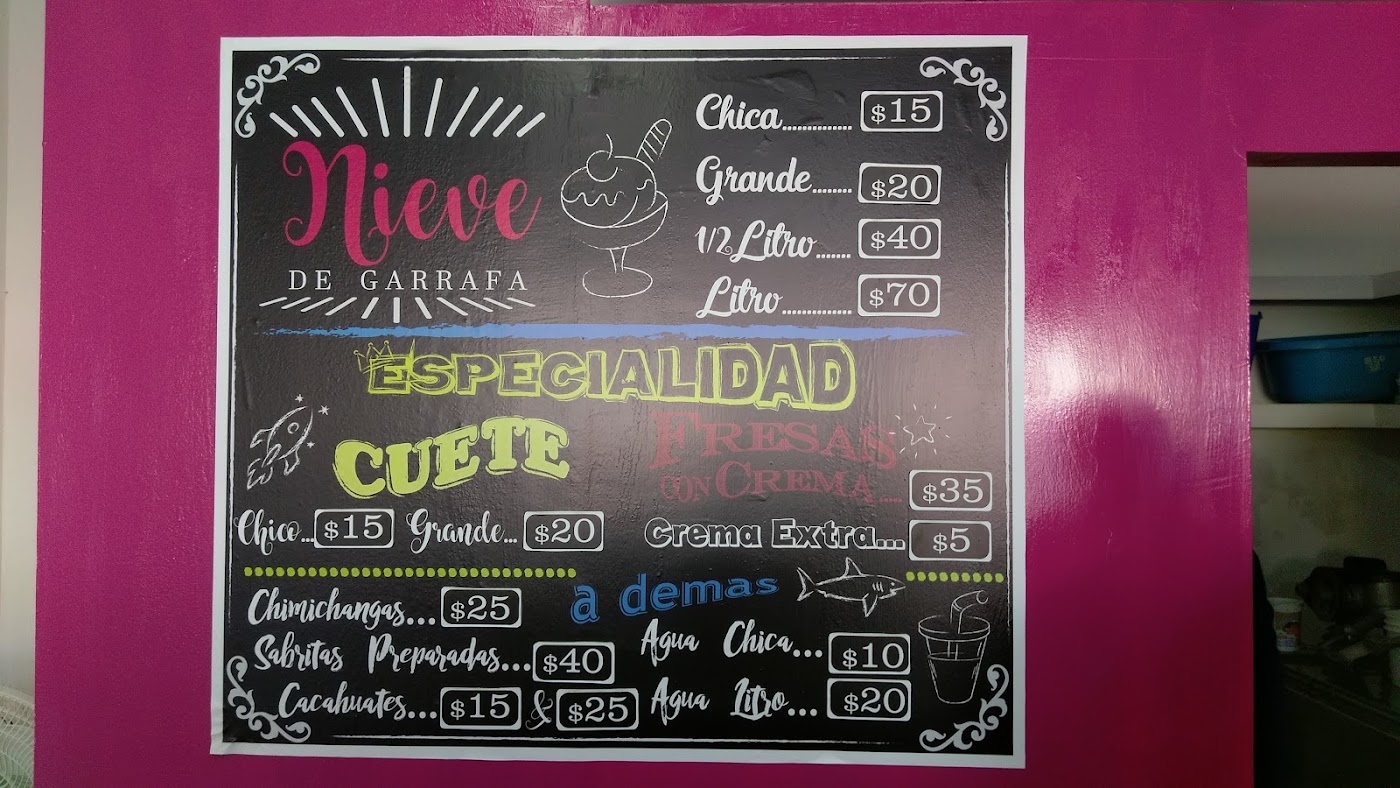 Nieve
DE GARRAFA
Chica............... $15
Grande........ $20
1/2 Litro....... $40
Litro............... $70
ESPECIALIDAD
CUETE
Chico... $15 Grande... $20
FRESAS
CON CREMA..... $35
Crema Extra... $5
a demas
Chimichangas... $25
Sabritas Preparadas... $40
Cacahuates... $15 & $25
Agua Chica... $10
Agua Litro... $20